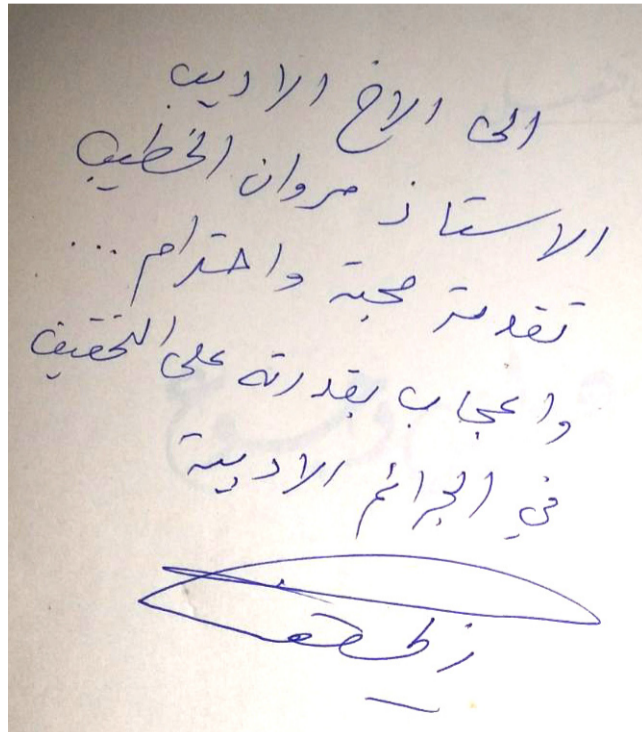 الى الاخ الاديب
الاستاذ مروان الخطيب
تقدمة محبة واحترام ...
واعجاب بقدرته على التحقيق
في الجرائم الادبية